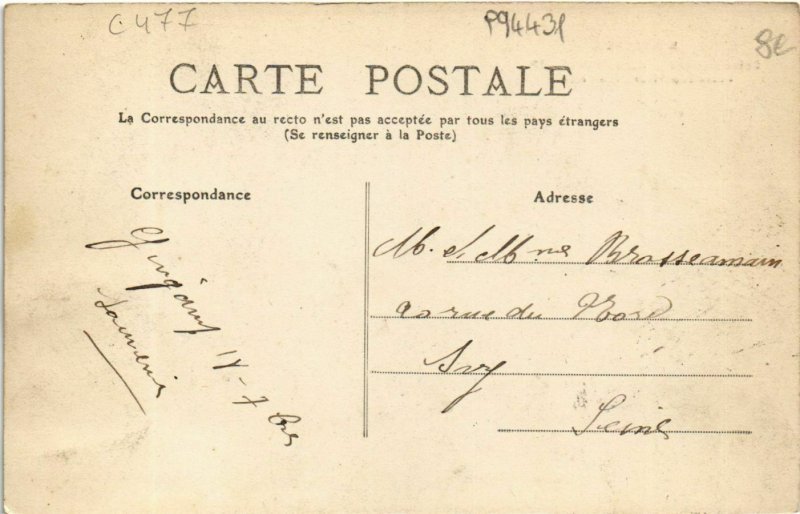 C477
P94431
8€
CARTE POSTALE
La Correspondance au recto n'est pas acceptée par tous les pays étrangers
(Se renseigner à la Poste)
Correspondance
Guingamp 18-7
Adresse
M. et Mme Brosseamain
rue du Nord
Ivry
Seine